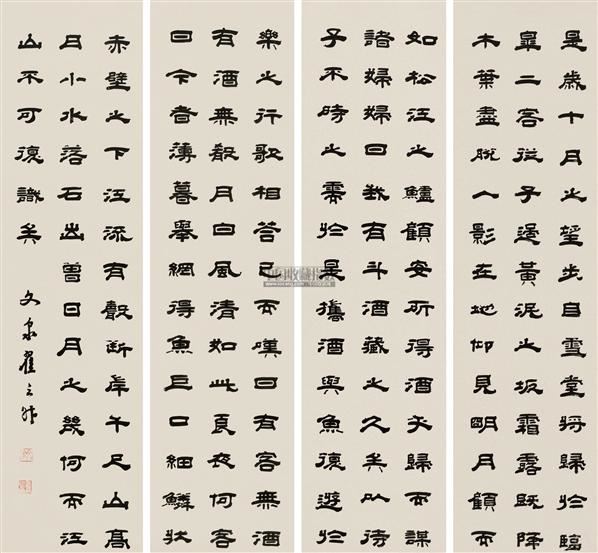 是歲十月之望步自雪堂將歸於臨
皋二客從予過黃泥之坂霜露既降
木葉盡脫人影在地仰見明月顧而
樂之行歌相答已而嘆曰有客無酒
有酒無殽月白風清如此良夜何客
曰今者薄暮舉網得魚巨口細鱗狀
如松江之鱸顧安所得酒乎歸而謀
諸婦婦曰我有斗酒藏之久矣以待
子不時之需於是攜酒與魚復遊於
赤壁之下江流有聲斷岸千尺山高
月小水落石出曾日月之幾何而江
山不可復識矣
文泉翟云升